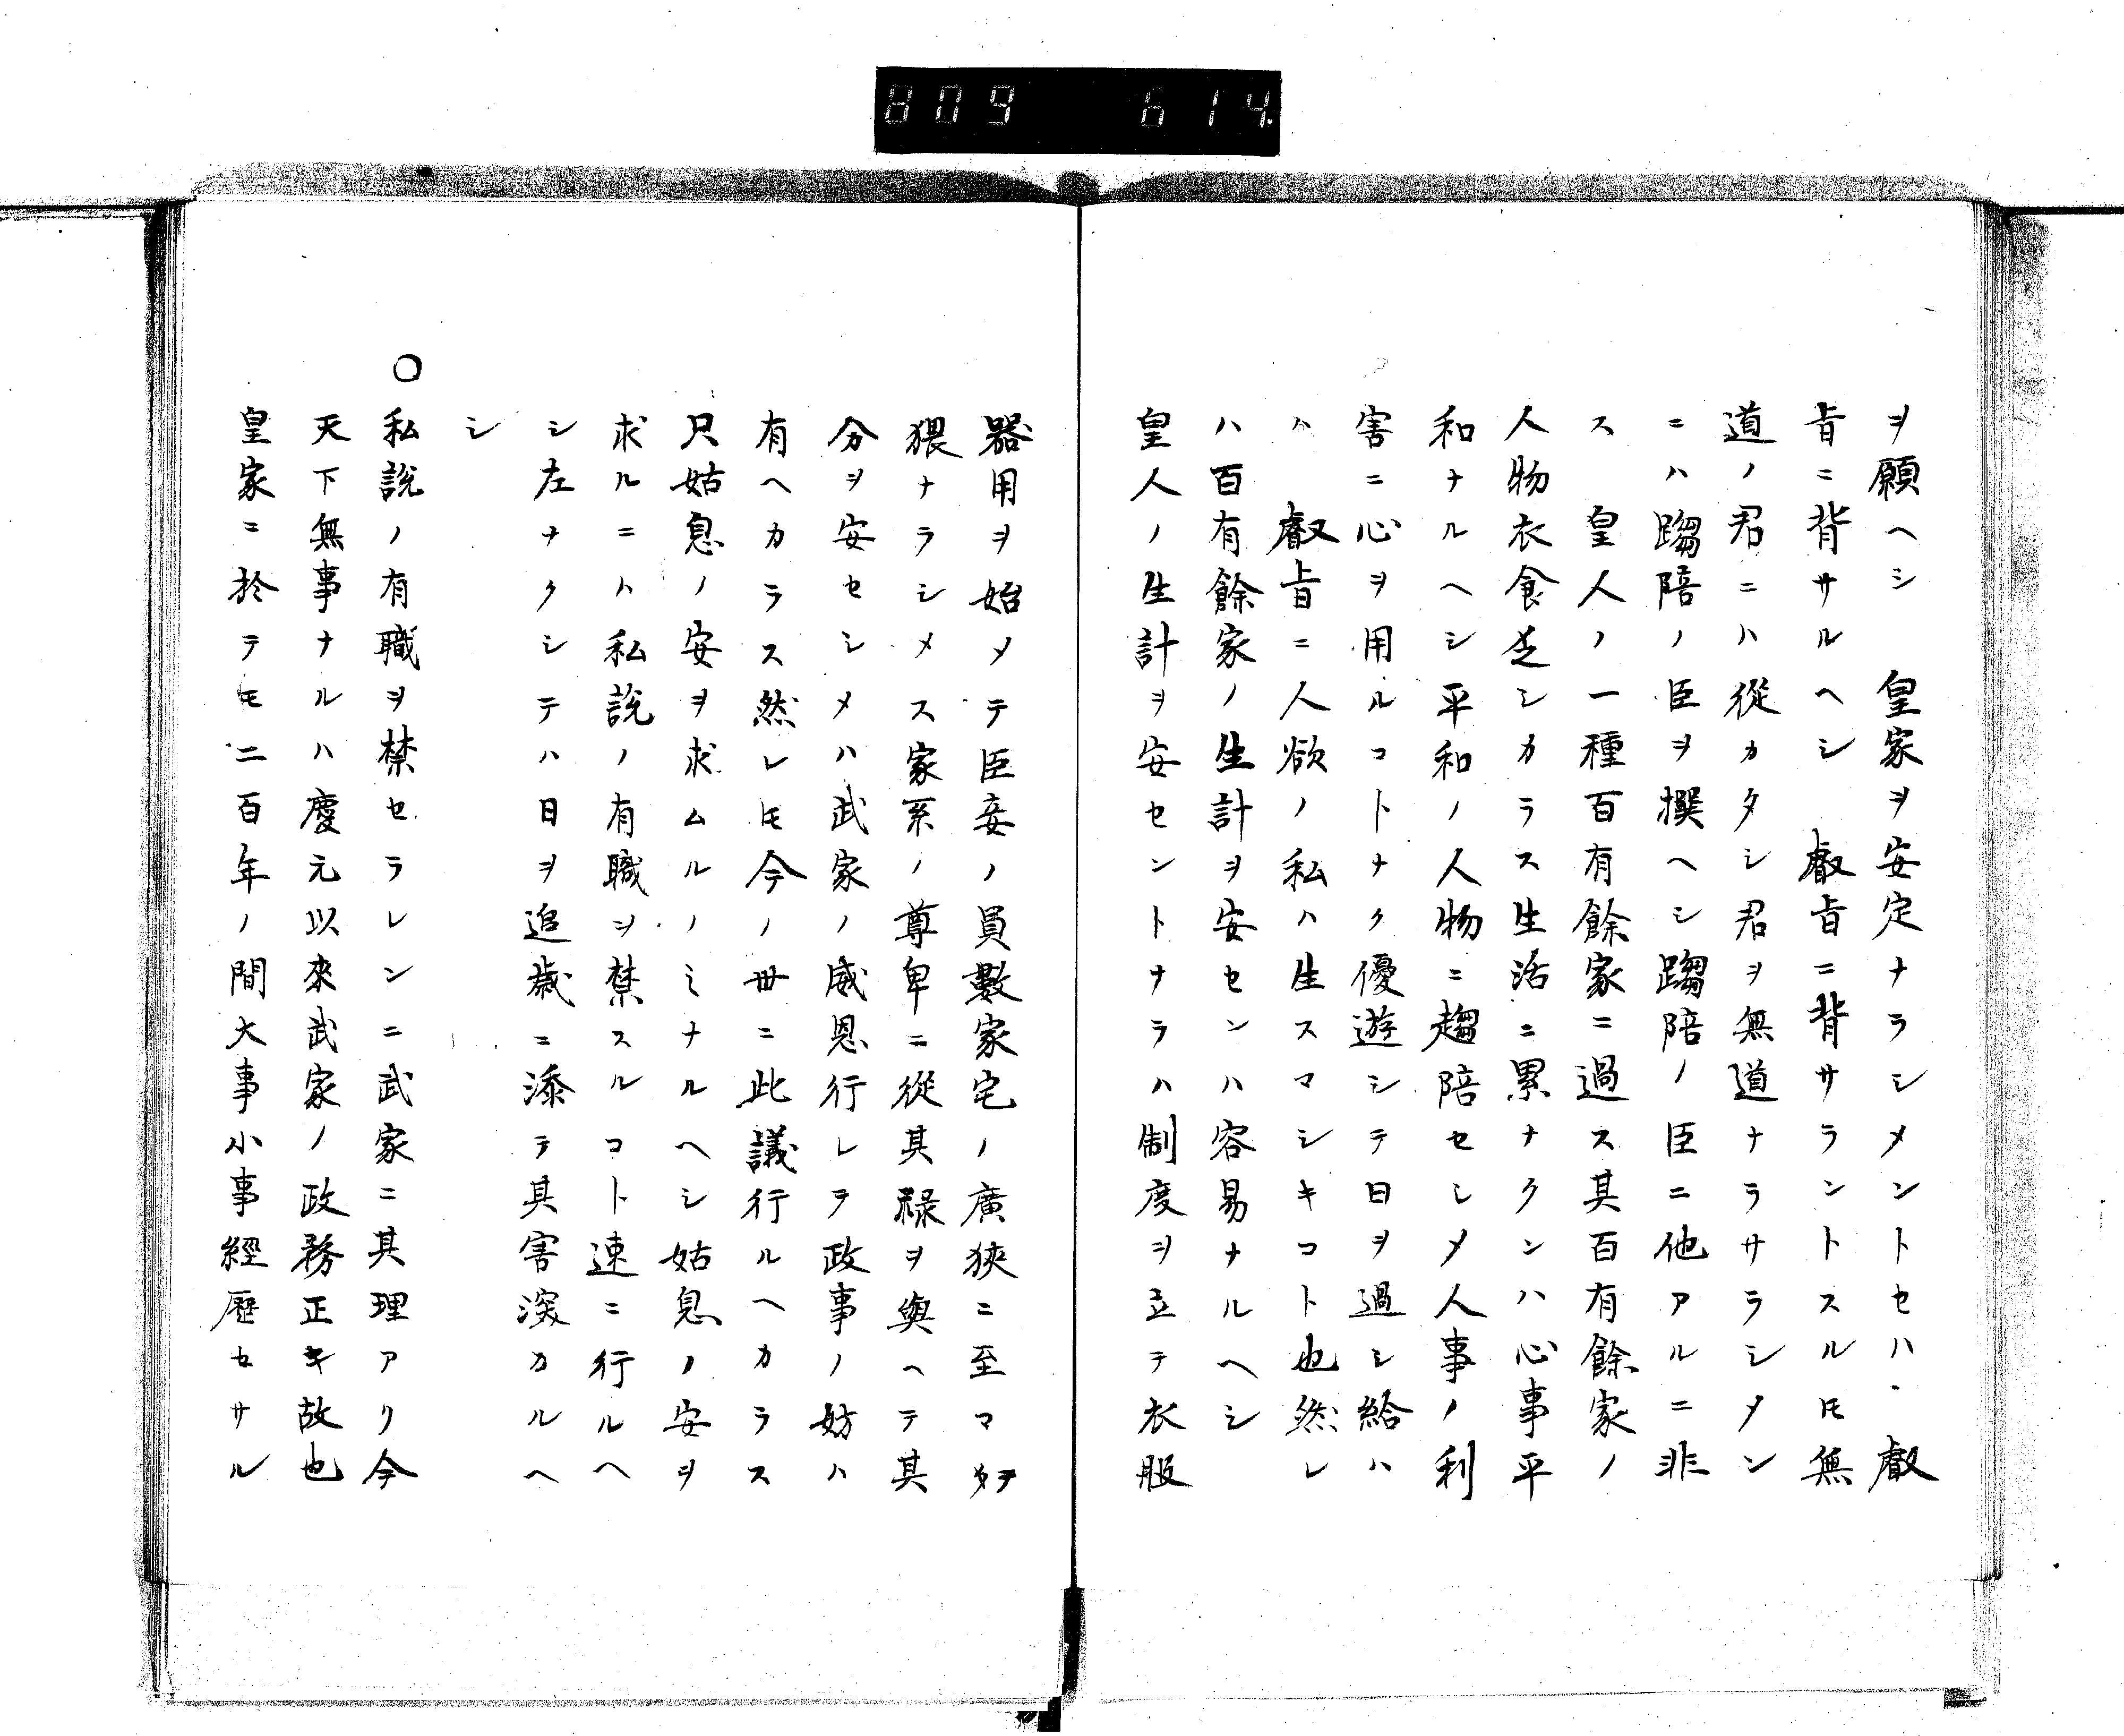 809 614
ヲ願ヘシ　皇家ヲ安定ナラシメントセハ、叡
旨ニ背サルヘシ　叡旨ニ背サラントスルㇳモ無
道ノ君ニハ從カタシ君ヲ無道ナラサラシメン
ニハ蹋陪ノ臣ヲ撰ヘシ蹋陪ノ臣ニ他アルニ非
ス　皇人ノ一種百有餘家ニ過ス其百有餘家ノ
人物衣食乏シカラス生活ニ累ナクンハ心事平
和ナルヘシ平和ノ人物ニ趨陪セシメ人事ノ利
害ニ心ヲ用ルコトナク優遊シテ日ヲ過シ給ハ
ハ　叡旨ニ人欲ノ私ハ生スマシキコト也然レ
ハ百有餘家ノ生計ヲ安センハ容易ナルヘシ
皇人ノ生計ヲ安セントナラハ制度ヲ立テ衣服
器用ヲ始メテ臣妾ノ員數家宅ノ廣狹ニ至マテ
猥ナラシメス家系ノ尊卑ニ從其祿ヲ與ヘテ其
分ヲ安セシメハ武家ノ威恩行レテ政事ノ妨ハ
有ヘカラス然レㇳモ今ノ世ニ此議行ルヘカラス
只姑息ノ安ヲ求ムルノミナルヘシ姑息ノ安ヲ
求ルニハ私說ノ有職ヲ禁スルコト速ニ行ルヘ
シ左ナクシテハ日ヲ追歲ニ添テ其害深カルヘ
シ
○私說ノ有職ヲ禁セラレンニ武家ニ其理アリ今
天下無事ナルハ慶元以來武家ノ政務正キ故也
皇家ニ於テモ二百年ノ間大事小事經歷セサル